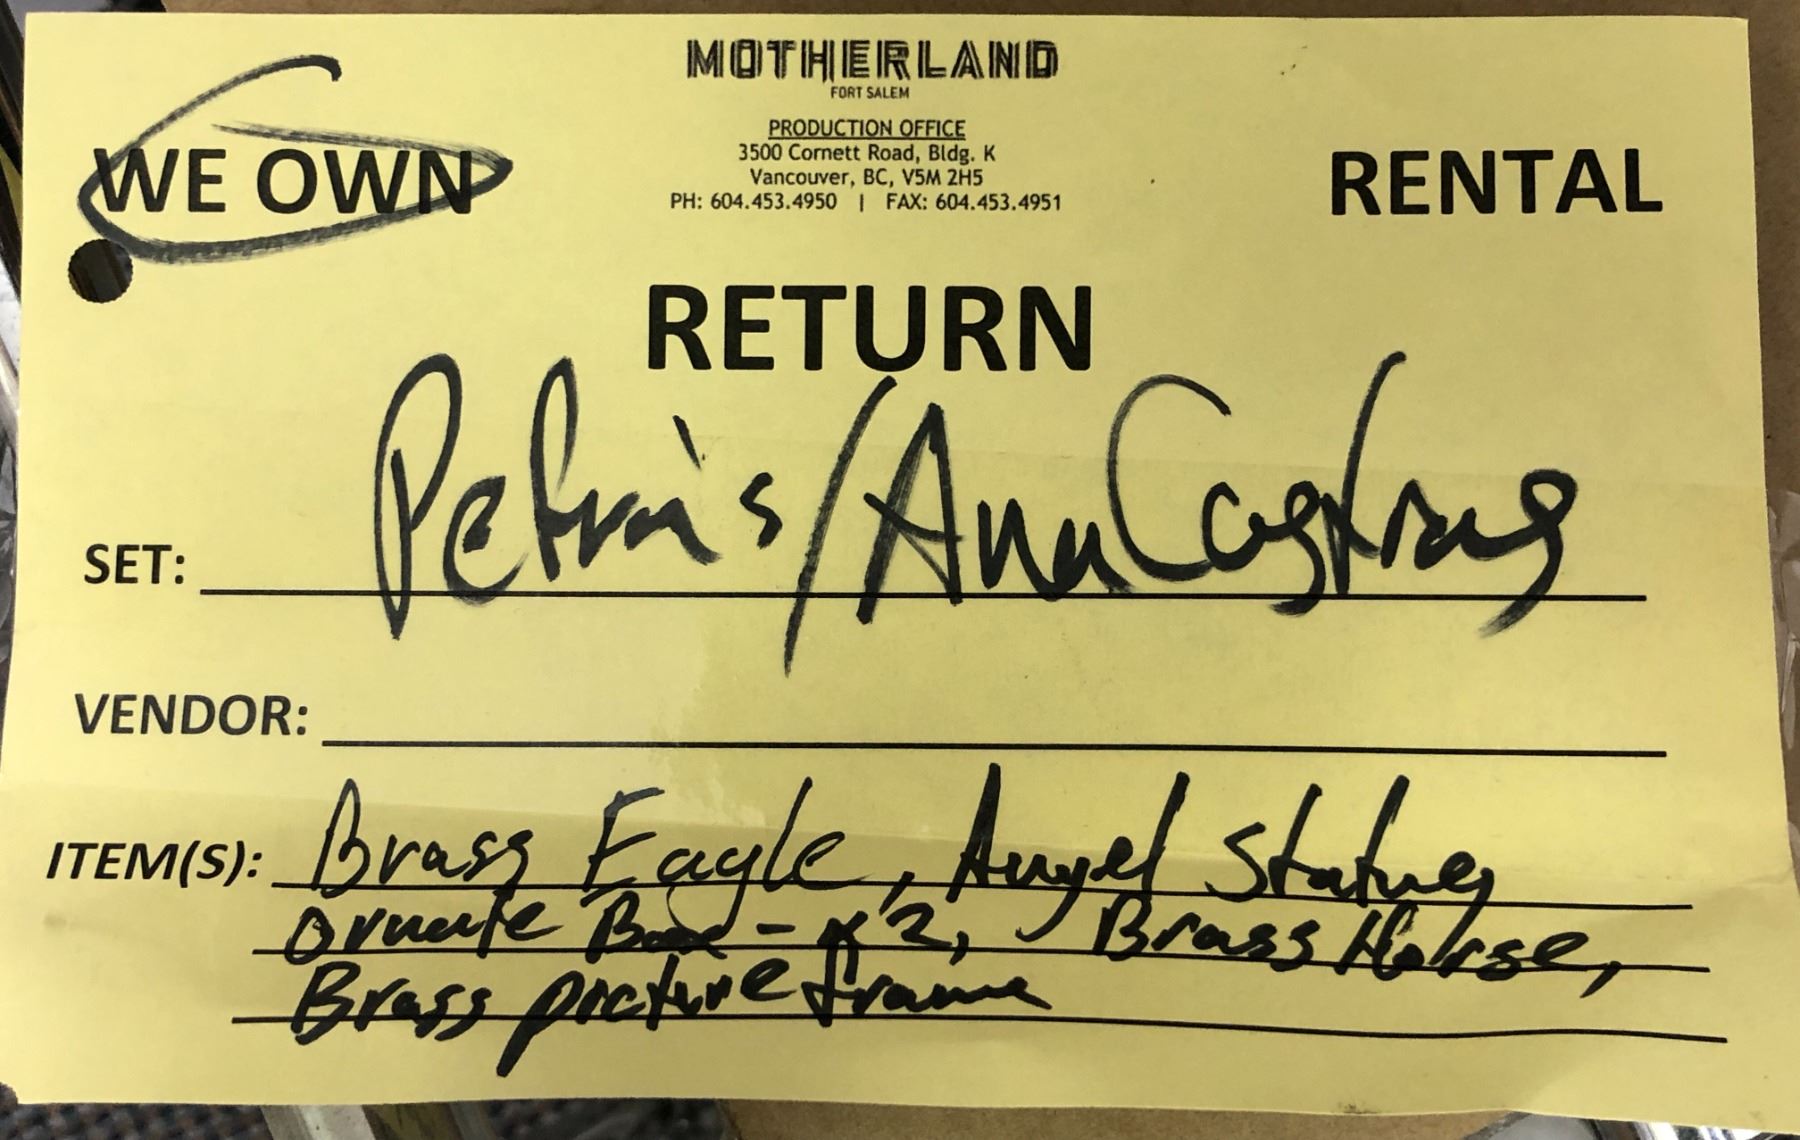 MOTHERLAND
FORT SALEM
PRODUCTION OFFICE
3500 Cornett Road, Bldg. K
Vancouver, BC, V5M 2H5
PH: 604.453.4950 | FAX: 604.453.4951
WE OWN
RENTAL
RETURN
SET: Petra's/Ana
VENDOR:
ITEM(S): Brass Eagle, Angel Statue,
ornate Box - x2, Brass Horse,
Brass picture frame